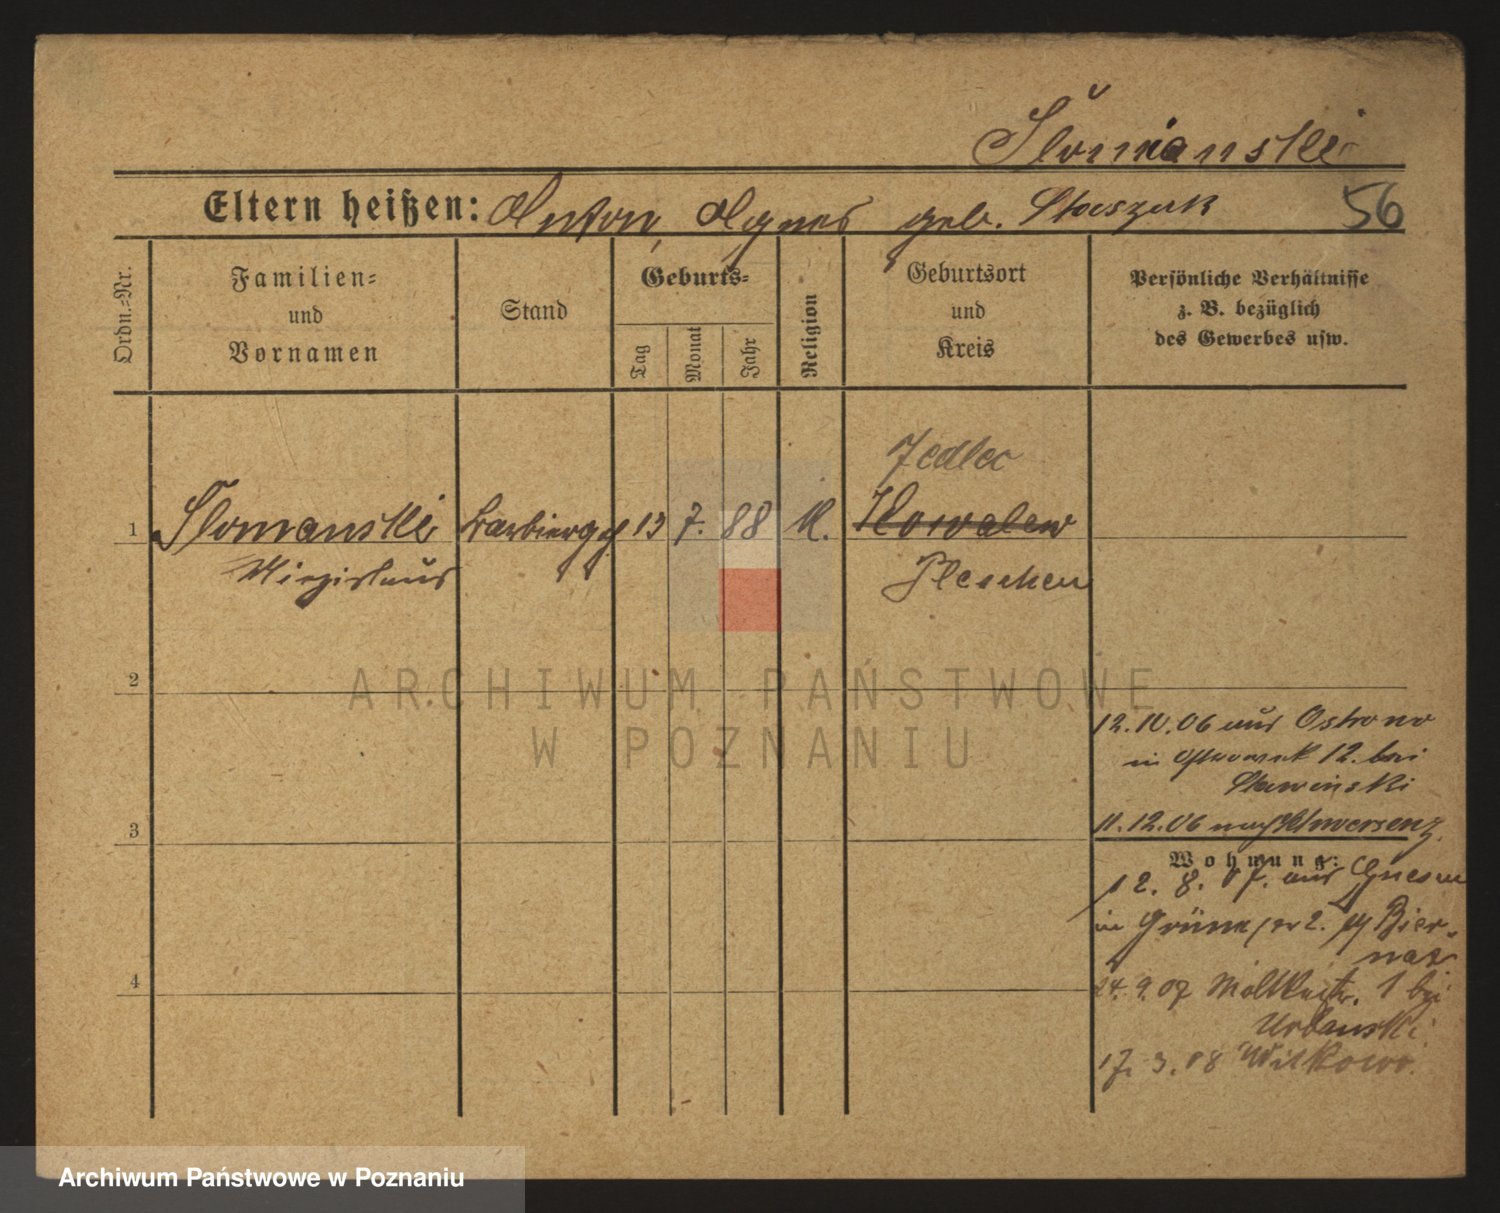 Slomianski
Eltern heißen: Anton, Agnes geb. Staszak 56
Ordn.-Nr.
Familien-
und
Vornamen
Stand
Geburts-
Tag
Monat
Jahr
Religion
Geburtsort
und
Kreis
Persönliche Verhältnisse
z. B. bezüglich
des Gewerbes usw.
Jedlec
1 Slomanski Barbiergh 13 7. 88 K. Kowalew
Miezislaus Pleschen
2
12.10.06 aus Ostrowo
in 12. bei
Stawinski
3 11.12.06 nach Schwersenz
Wohnung:
12. 8. 07. aus Gnesen
in 2. Bier-
naz
4 24. 9. 07 Moltkestr. 1 bei
Urbanski
17. 3. 08 Witkowo.
ARCHIWUM PAŃSTWOWE
W POZNANIU
Archiwum Państwowe w Poznaniu